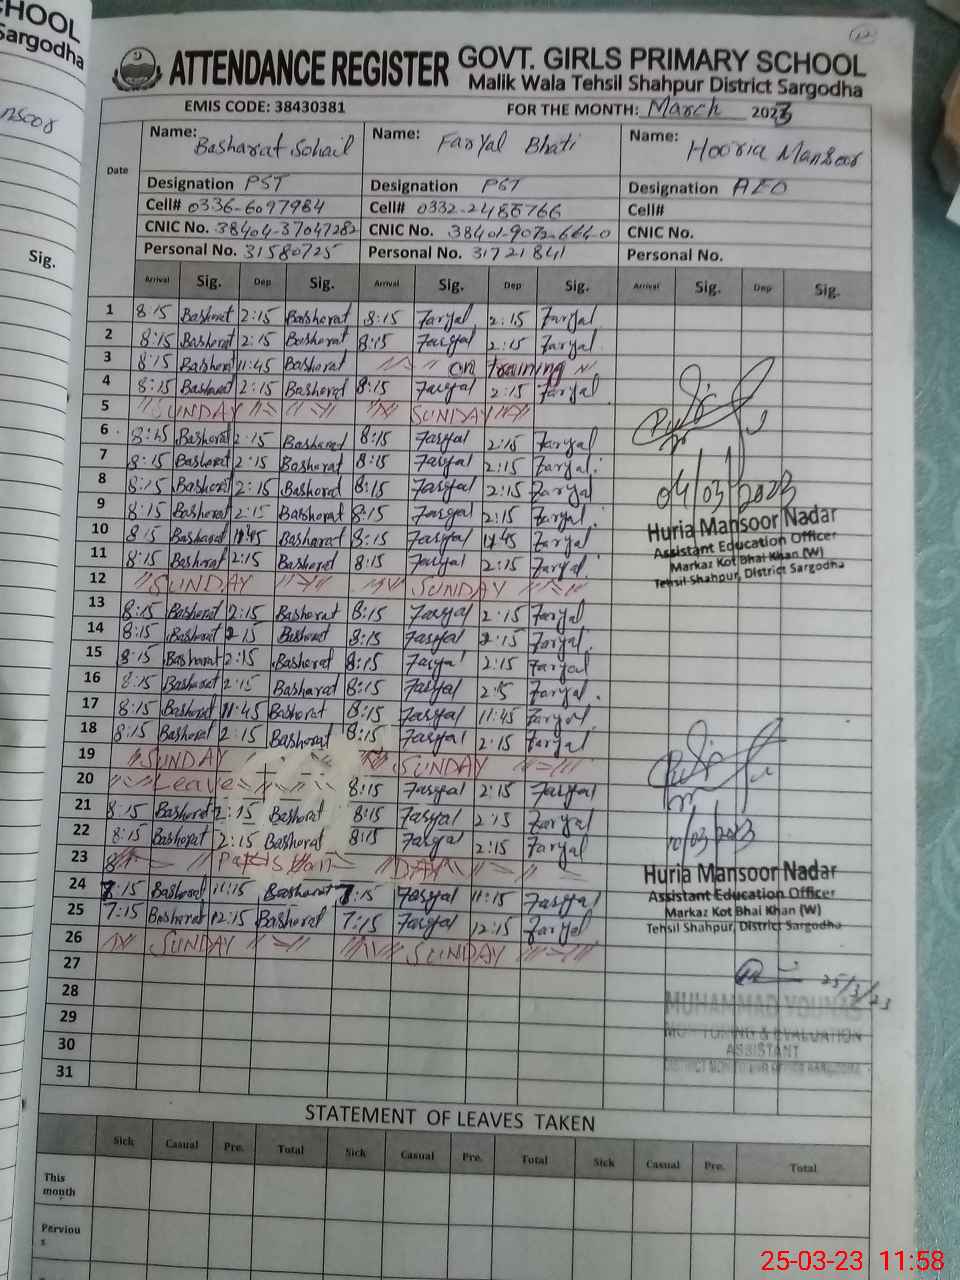 CHOOL
Sargodha
Sig.
ATTENDANCE REGISTER GOVT. GIRLS PRIMARY SCHOOL
Malik Wala Tehsil Shahpur District Sargodha
EMIS CODE: 38430381 FOR THE MONTH: March 2023
Date Name: Basharat Sohail Name: Faryal Bhati Name: Hooria Mansoor
Designation PST Designation PST Designation AEO
Cell# 0336-6097984 Cell# 0332-2485766 Cell#
CNIC No. 38404-37047282 CNIC No. 38401-9072-664-0 CNIC No.
Personal No. 31580725 Personal No. 31721841 Personal No.
Arrival Sig. Dep Sig. Arrival Sig. Dep Sig. Arrival Sig. Dep Sig.
1 8:15 Basharat 2:15 Basharat 8:15 Faryal 2:15 Faryal
2 8:15 Basharat 2:15 Basharat 8:15 Faryal 2:15 Faryal
3 8:15 Basharat 11:45 Basharat on training
4 8:15 Basharat 2:15 Basharat 8:15 Faryal 2:15 Faryal
5 SUNDAY SUNDAY
6 8:15 Basharat 2:15 Basharat 8:15 Faryal 2:15 Faryal
7 8:15 Basharat 2:15 Basharat 8:15 Faryal 2:15 Faryal
8 8:15 Basharat 2:15 Basharat 8:15 Faryal 2:15 Faryal
9 8:15 Basharat 2:15 Basharat 8:15 Faryal 2:15 Faryal
10 8:15 Basharat 11:45 Basharat 8:15 Faryal 11:45 Faryal
11 8:15 Basharat 2:15 Basharat 8:15 Faryal 2:15 Faryal
12 SUNDAY SUNDAY
13 8:15 Basharat 2:15 Basharat 8:15 Faryal 2:15 Faryal
14 8:15 Basharat 2:15 Basharat 8:15 Faryal 2:15 Faryal
15 8:15 Basharat 2:15 Basharat 8:15 Faryal 2:15 Faryal
16 8:15 Basharat 2:15 Basharat 8:15 Faryal 2:15 Faryal
17 8:15 Basharat 11:45 Basharat 8:15 Faryal 11:45 Faryal
18 8:15 Basharat 2:15 Basharat 8:15 Faryal 2:15 Faryal
19 SUNDAY SUNDAY
20 Leave 8:15 Faryal 2:15 Faryal
21 8:15 Basharat 2:15 Basharat 8:15 Faryal 2:15 Faryal
22 8:15 Basharat 2:15 Basharat 8:15 Faryal 2:15 Faryal
23 Pakistan DAY
24 7:15 Basharat 11:15 Basharat 7:15 Faryal 11:15 Faryal
25 7:15 Basharat 12:15 Basharat 7:15 Faryal 12:15 Faryal
26 SUNDAY SUNDAY
27
28
29
30
31
04/03/2023
Huria Mansoor Nadar
Assistant Education Officer
Markaz Kot Bhai Khan (W)
Tehsil Shahpur, District Sargodha
10/03/2023
Huria Mansoor Nadar
Assistant Education Officer
Markaz Kot Bhai Khan (W)
Tehsil Shahpur, District Sargodha
25/3/23
MUHAMMAD YOUNAS
MONITORING & EVALUATION
ASSISTANT
STATEMENT OF LEAVES TAKEN
Sick Casual Pre. Total Sick Casual Pre. Total Sick Casual Pre. Total
This
month
Perviou
s
25-03-23 11:58